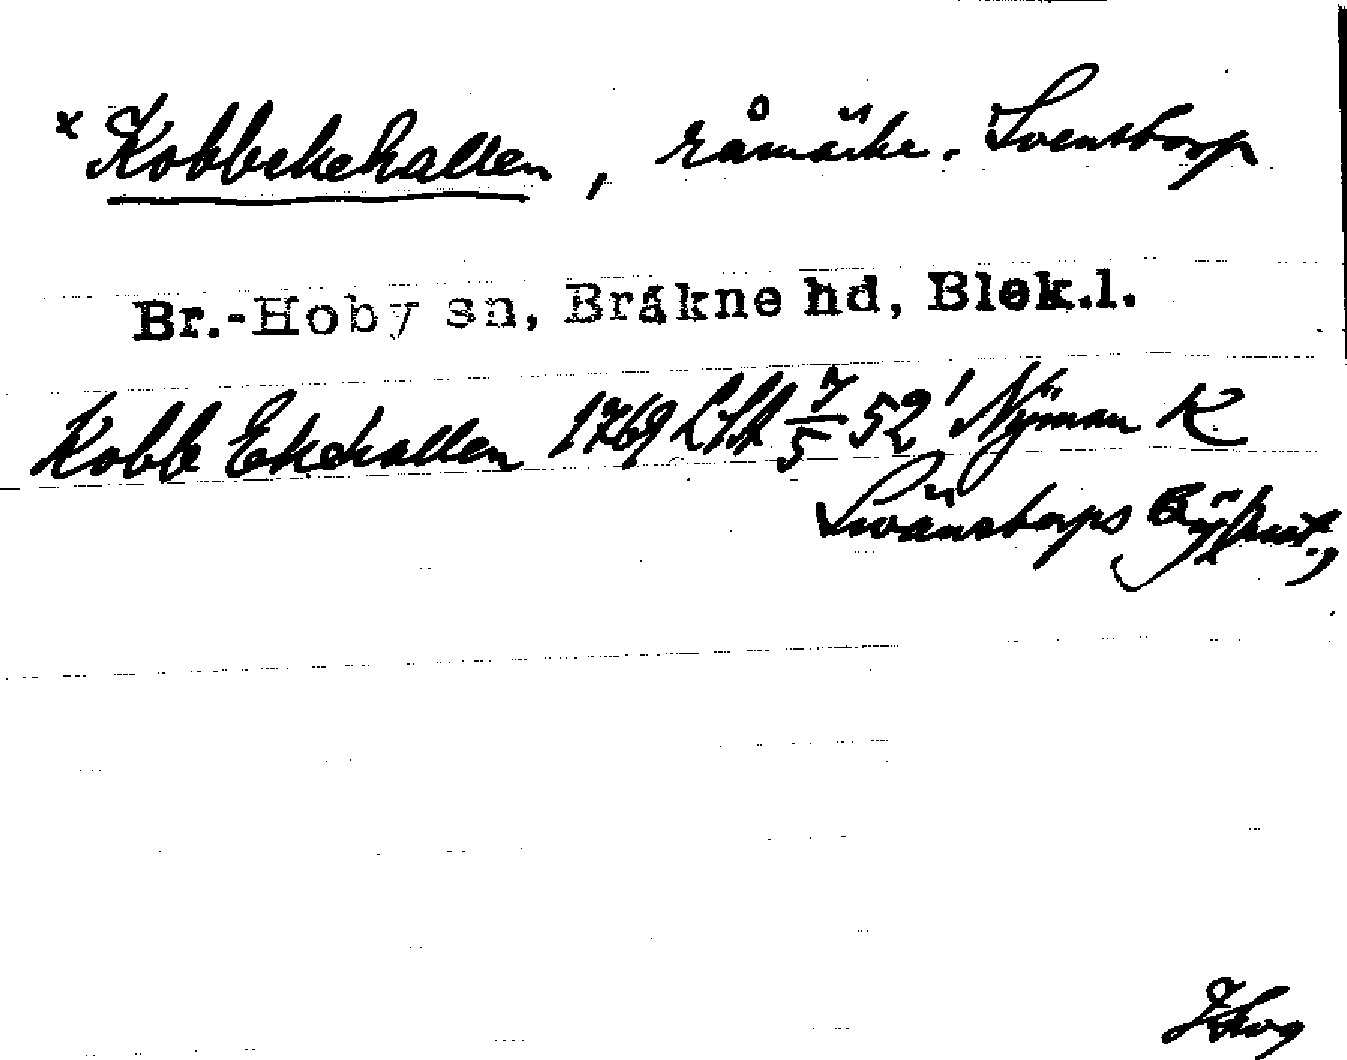 x Kobbekehallen, råmärke. Svenstorp
Br.-Hoby sn, Bräkne hd, Blek.l.
Kobb Ekehallen 1769 LSA 7/5 52' Nyman K
Swänstorps